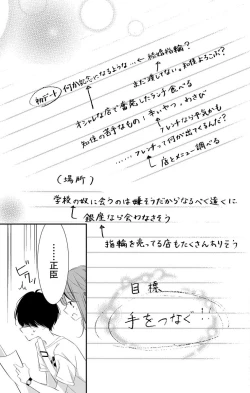 初デート
何か記念になるような… ← 結婚指輪?
まだ渡してない。知佳よろこぶ?
オシャレな店で奮発したランチ食べる
知佳の苦手なもの:辛いやつ、わさび
フレンチなら平気かも
フレンチって何が出てくるんだ?
……店とメニュー調べる
(場所)
学校の奴に会うのは嫌そうだからなるべく遠くに
銀座なら会わなさそう
指輪を売ってる店もたくさんありそう
目標
手をつなぐ!!
……正臣